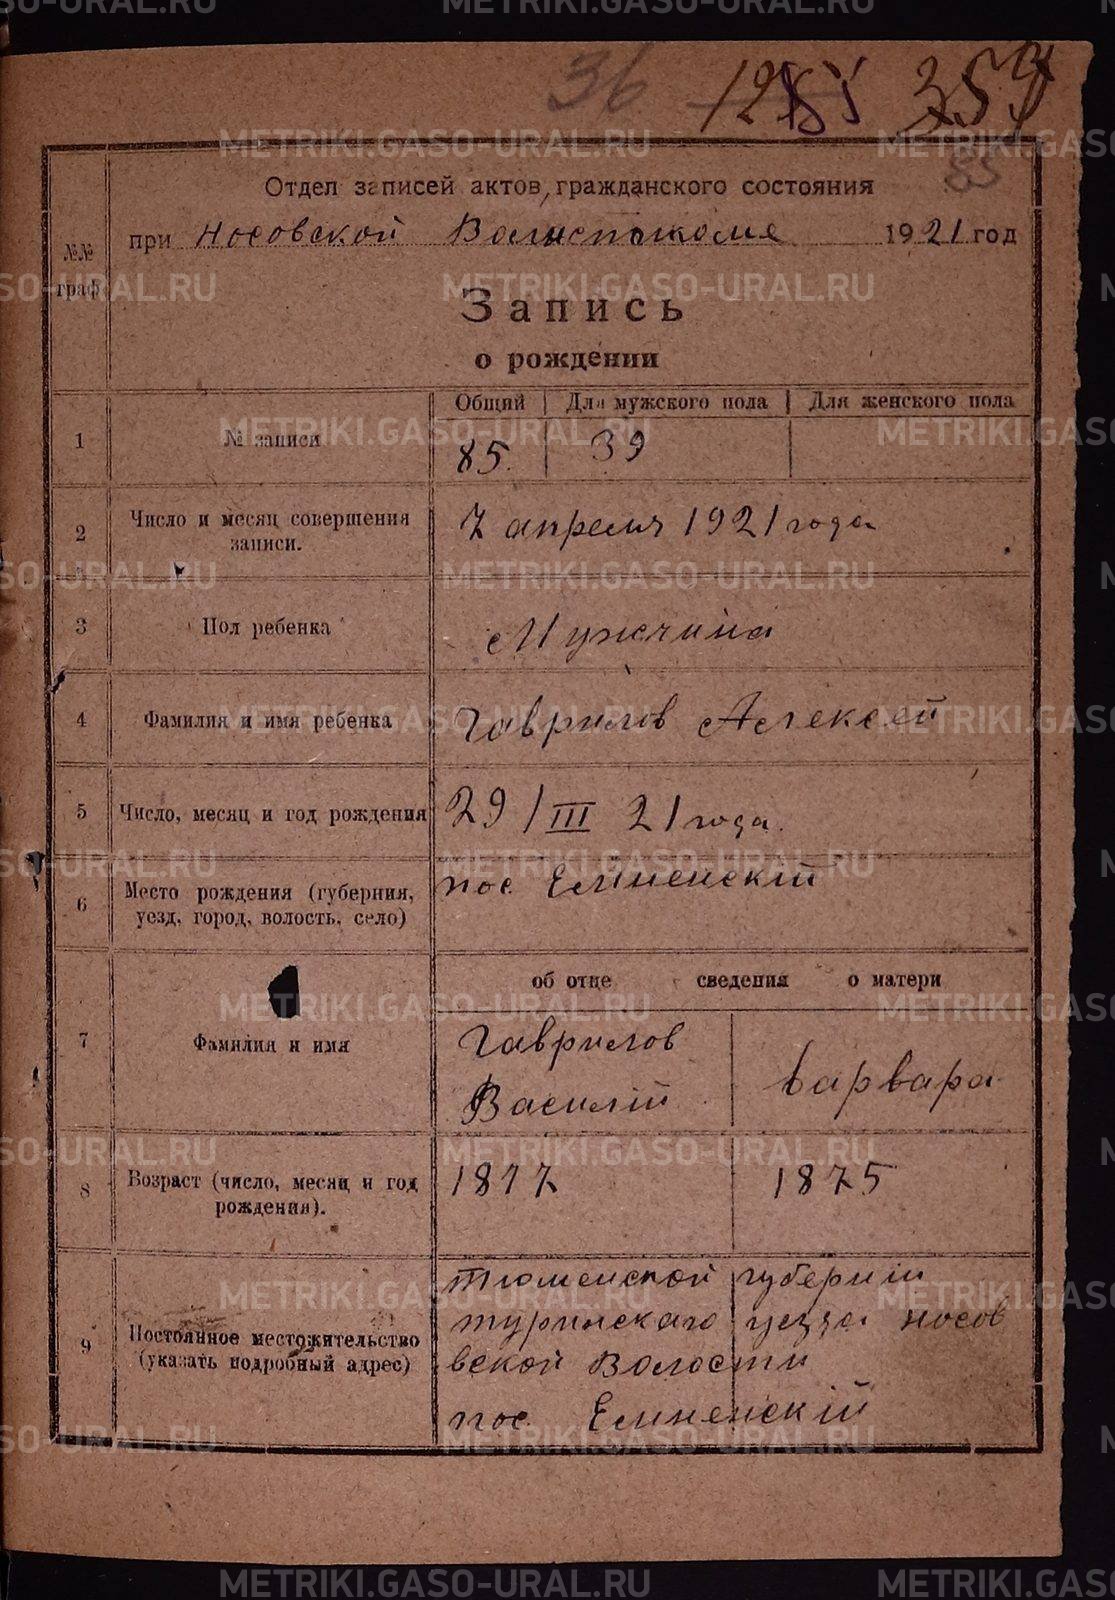 METRIKI.GASO-URAL.RU
36 359
85
Отдел записей актов, гражданского состояния
при Носовской Волисполкоме 1921 год
№№ граф
Запись
о рождении
Общий Для мужского пола Для женского пола
1 № записи 85. 39
2 Число и месяц совершения записи. 7 апреля 1921 года
3 Пол ребенка Мужчина
4 Фамилия и имя ребенка Гаврилов Алексей
5 Число, месяц и год рождения 29/III 21 года.
6 Место рождения (губерния, уезд, город, волость, село) пос
об отце сведения о матери
7 Фамилия и имя Гаврилов Василій Варвара
8 Возраст (число, месяц и год рождения). 1877 1875
9 Постоянное местожительство (указать подробный адрес)
тюменской губерніи
туринскаго уезда носов
вской Волости
пос